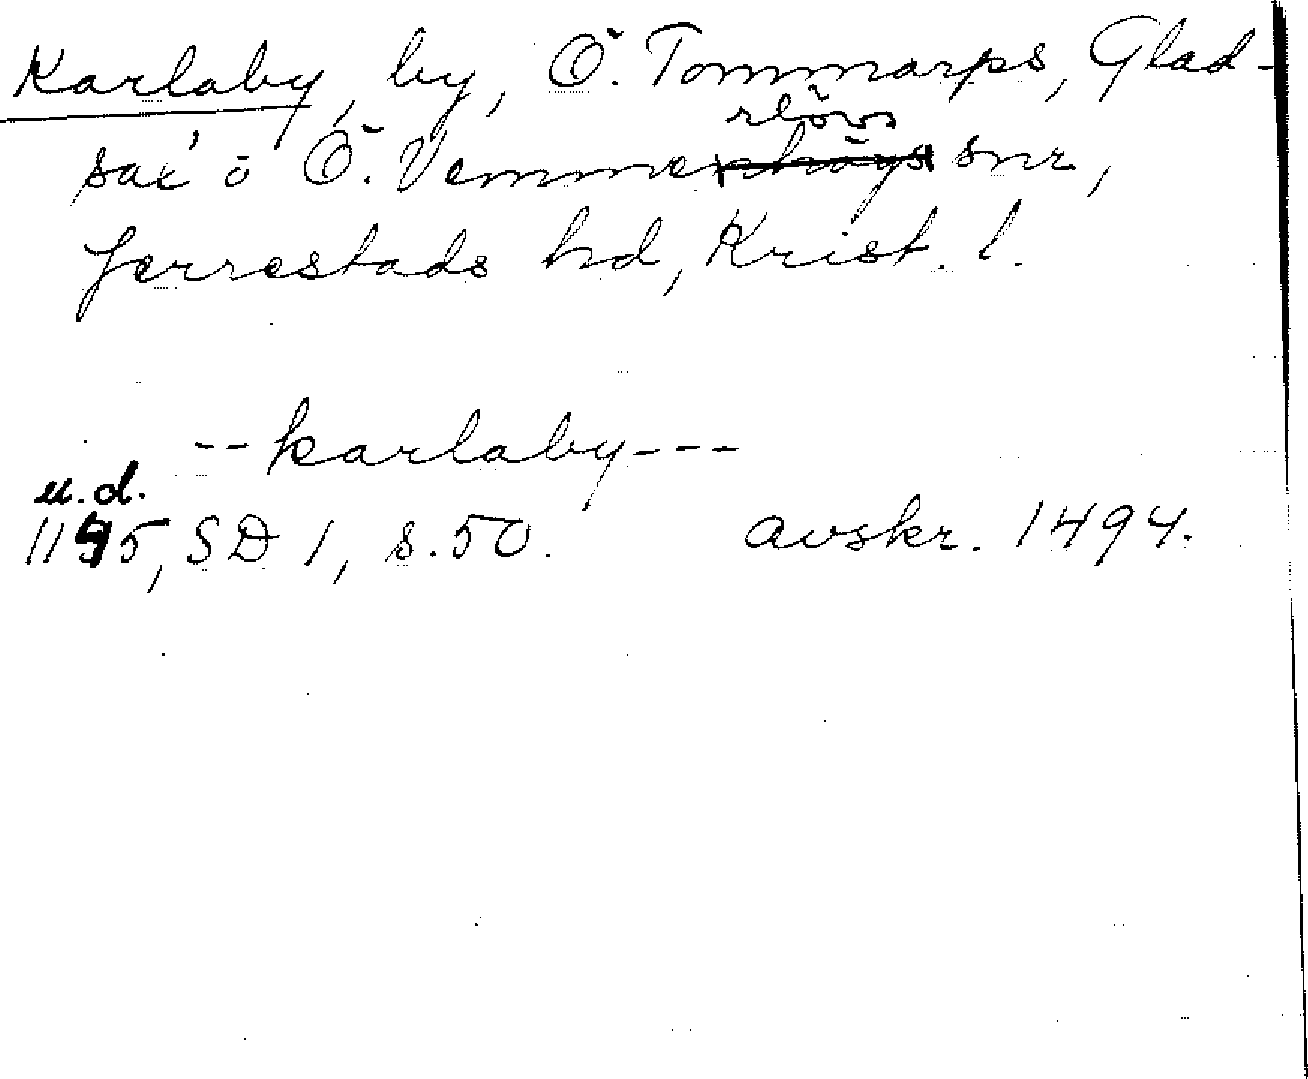 Karlaby, by, Ö. Tommarps, Glad-
sax' o Ö. Vemmerlövs snr,
Jerrestads hd, Krist. l.
--karlaby---
u.d.
1145, SD 1, s. 50. avskr. 1494.